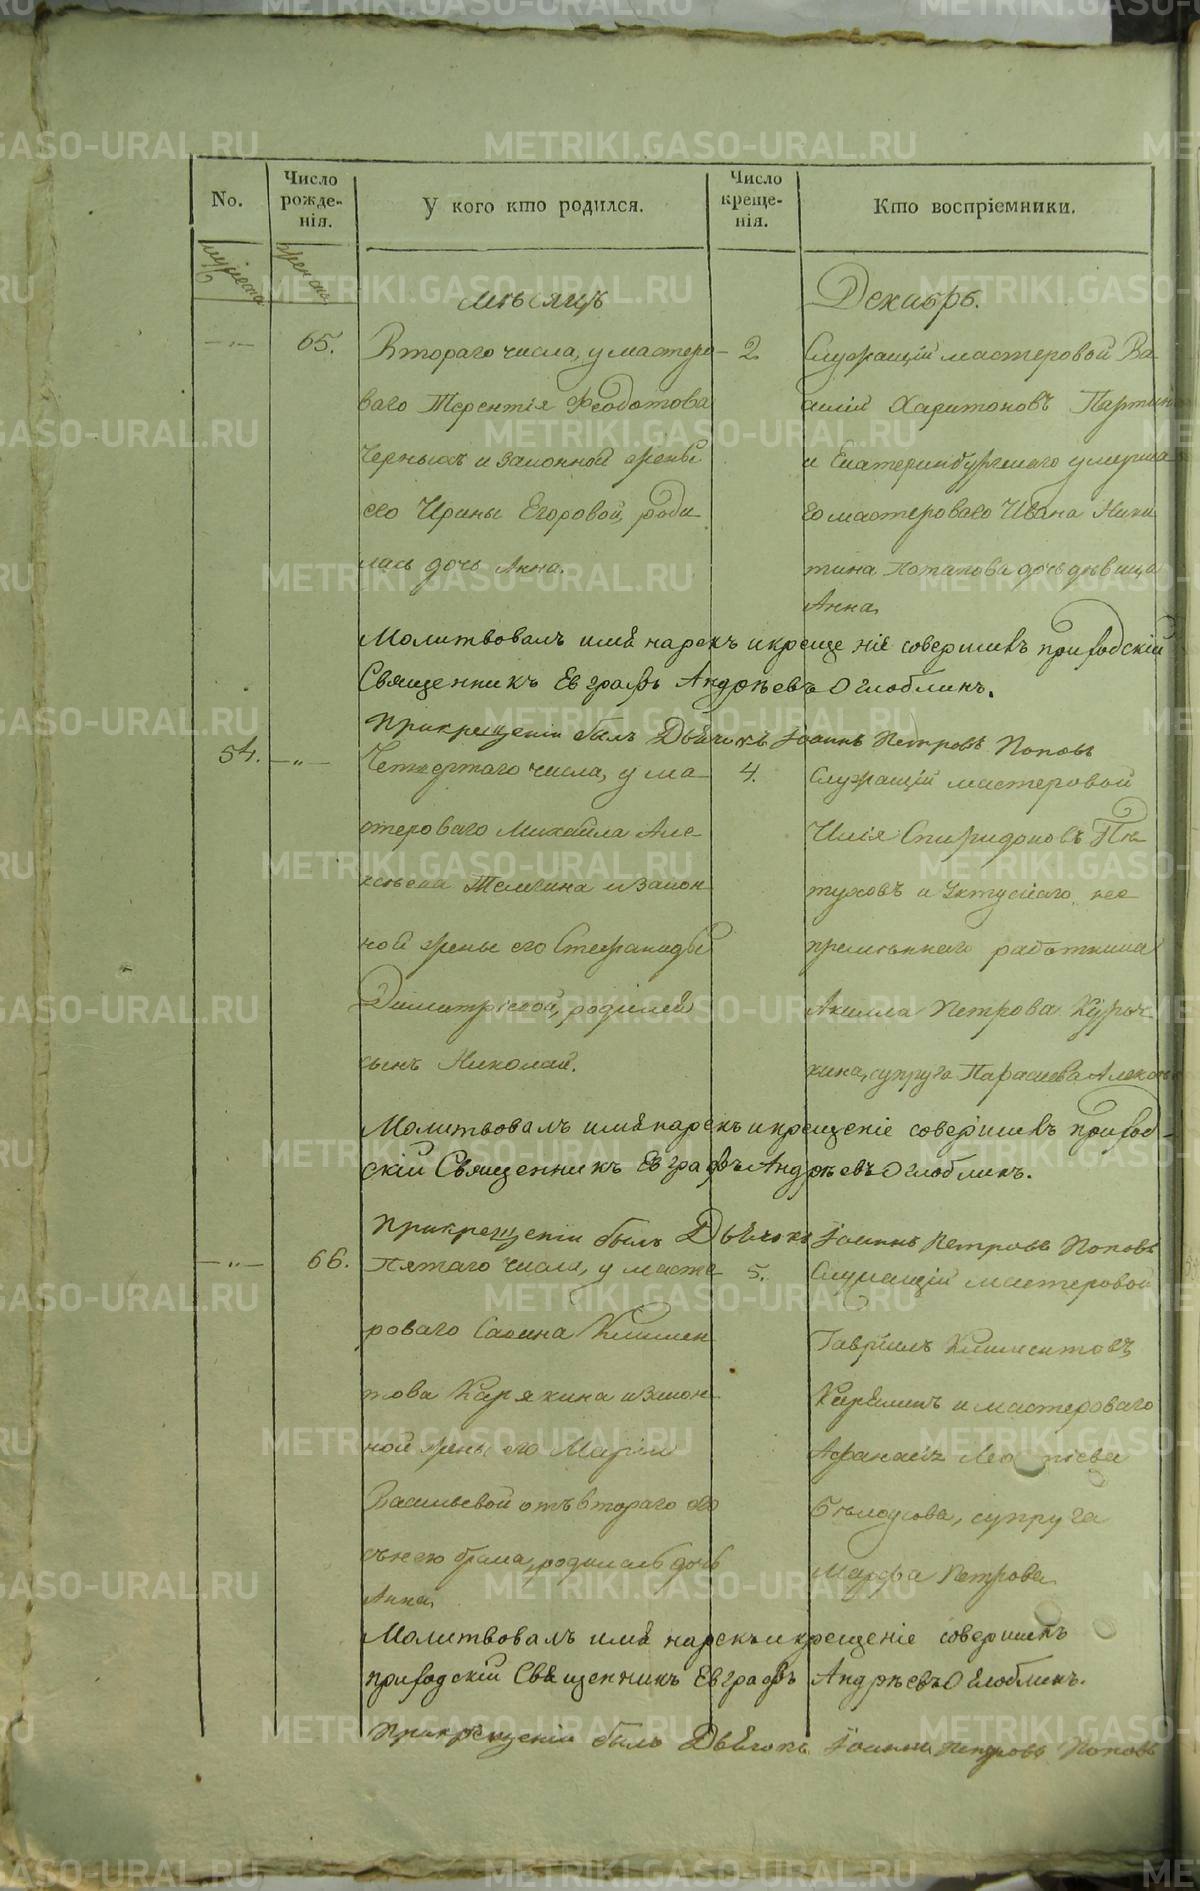 METRIKI.GASO-URAL.RU
No.
Число рожде-нія.
У кого кто родился.
Число креще-нія.
Кто воспріемники.
мужеска
женска
мѣсяцъ
Декабрь.
— „ —
65.
Втораго числа, у мастеро-
ваго Терентія Феодотова
Черныхъ и законной жены
его Ирины Егоровой, роди
лась дочь Анна.
2
Служащій мастеровой Ва
силій Харитоновъ Партин
и Екатеринбургскаго умерша
го мастероваго Ивана Ники
тина Потапова дочь дѣвица
Анна,
Молитвовалъ имя нарекъ и крещеніе совершилъ приходскій
Священникъ Евграфъ Андрѣевъ Оглоблинъ.
При крещеніи былъ Дьячокъ Іоаннъ Петровъ Поповъ
54.
— „ —
Четвертаго числа, у ма
стероваго Михайла Але
ксѣева и закон
ной жены его Стефаниды
Димитріевой, родился
сынъ Николай.
4.
Служащій мастеровой
Илія Спиридоновъ Пѣ
туховъ и Уктускаго не
премѣннаго работника
Акилла Петрова
кина, супруга Параскева Алексѣ
Молитвовалъ имя нарекъ и крещеніе совершилъ приход-
скій Священникъ Евграфъ Андрѣевъ Оглоблинъ.
При крещеніи былъ Дьячокъ Іоаннъ Петровъ Поповъ
— „ —
66.
Пятаго числа, у масте
роваго Савина Климен
това Карякина и закон
ной жены его Маріи
Васильевой отъ втораго его
съ нею брака, родилась дочь
Анна,
5.
Служащій мастеровой
Гавріилъ Климентовъ
Карякинъ и мастероваго
Афанасія Леонтіева
супруга
Марфа Петрова
Молитвовалъ имя нарекъ и крещеніе совершилъ
приходскій Священникъ Евграфъ Андрѣевъ Оглоблинъ.
При крещеніи былъ Дьячокъ Іоаннъ Петровъ Поповъ